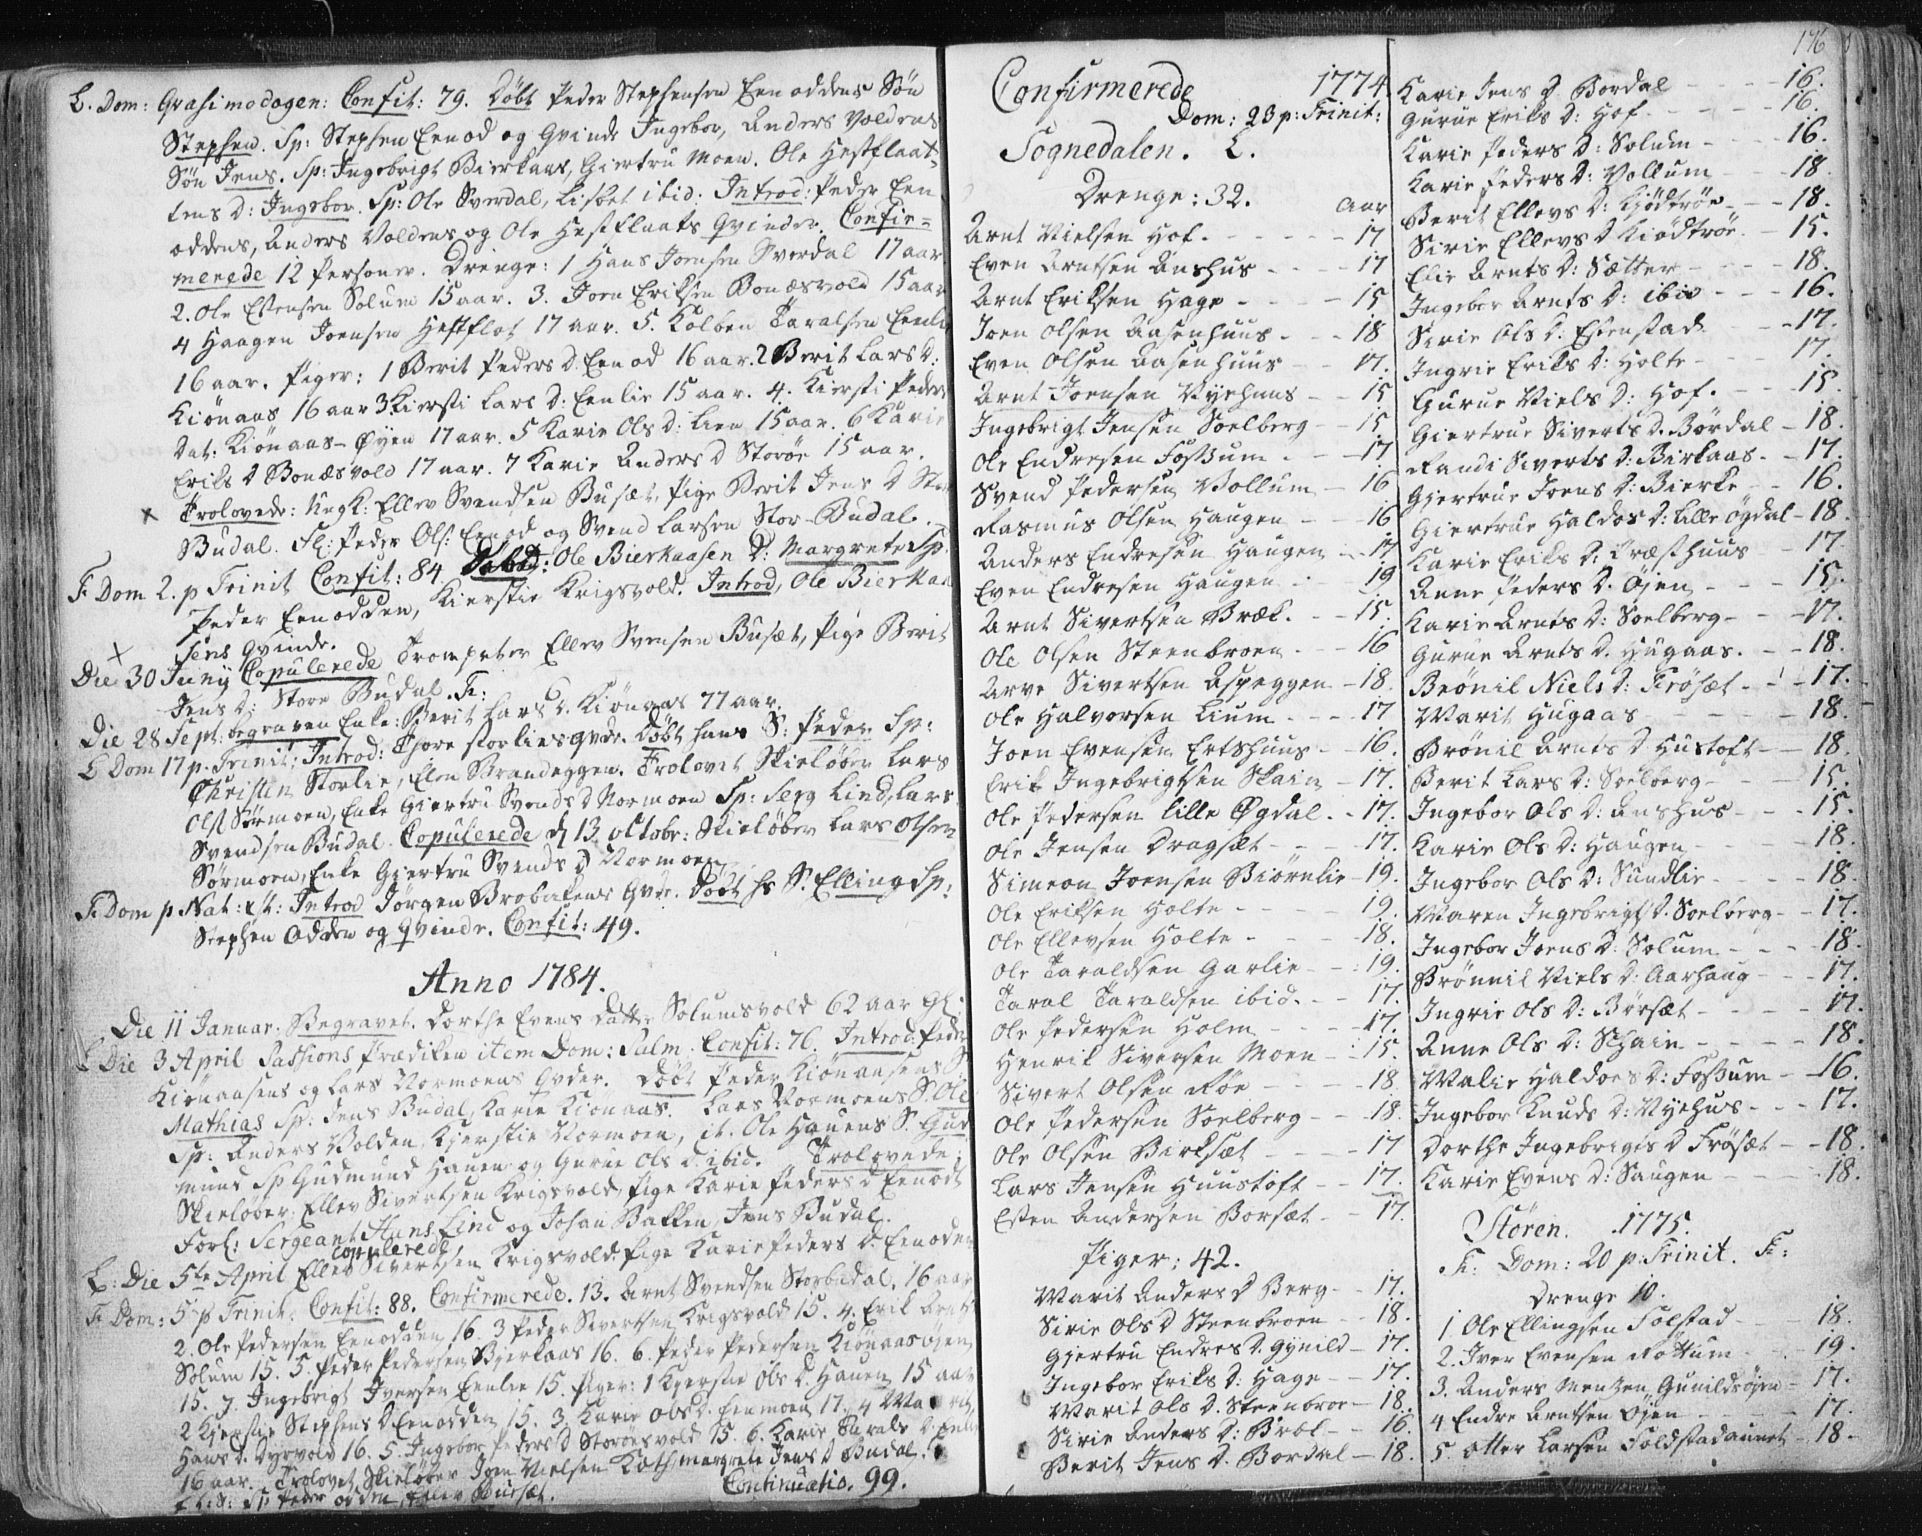 L. Dom: Qvasimodogen: Confit: 79. Döbt Peder Stephensen Eenoddens Sön
Stephen. Sp: Stephen Eenod og Qvinde Ingebor, Anders Voldens
Sön Jens. Sp: Ingebrigt Bierkaas, Giertru Moen. Ole Hestflaat-
tens D: Ingebor. Sp: Ole Sverdal, Lisbet ibid: Introd: Peder Een
oddens, Anders Voldens og Ole Hestflaats Qvinder. Confir=
merede 12 Personer. Drenge: 1 Hans Joensen Sverdal 17 aar
2. Ole Estensen Solum 15 aar. 3. Joen Eriksen Bonæsvold 15 aar
4 Haagen Joensen Hestflot 17 aar. 5. Kolben Taralsen Eenli
16 aar. Piger: 1 Berit Peders D. Eenod 16 aar. 2 Berit Lars D.
Kiönaas 16 aar 3 Kiersti Lars D: Eenlie 15 aar. 4. Kiersti Peders
Dat: Kiönaas-Øyen 17 aar. 5 Karie Ols D: Lien 15 aar. 6 Karie
Eriks D Bonæsvold 17 aar. 7 Karie Anders D Storöe 15 aar.
x Trolovede: Ungk: Ellev Svendsen Busæt, Pige Berit Jens D Stor
Budal. Fl: Peder Ols: Eenod og Svend Larsen Stor-Budal.
F. Dom 2. p Trinit Confit: 84. Döbt: Ole Bierkaasen D: Margrete Sp.
Peder Eenodden, Kierstie Krigsvold. Introd, Ole Bierkaa
sens Qvinde.
x
Die 30 Juny Copulerede Trompeter Ellev Svensen Busæt, Pige Berit
Jens D: Store Budal. F:
Die 28 Sept: begraven Enke: Berit Lars D. Kiönaas 77 aar.
L Dom 17 p. Trinit: Introd: Thore Storlies qvde. Döbt hans S: Peder Sp:
Christen Storlie, Elen Brandeggen. Trolovet Skielöber Lars
Ols: Sörmoen, Enke Giertru Svends D Normoen Sp: Serg Lind, Lars
Svendsen Budal. Copulerede d 13 octobr: Skielöber Lars Olsen
Sörmoen, Enke Giertru Svends D Normoen
F. Dom p Nat: xt: Introd Jörgen Brobakens Qvde. Döbt hs S. Elling Sp:
Stephen Odden og Qvinde. Confit: 49.
Anno 1784.
Die 11 Januar. Begravet. Dorthe Evens Datter Solumsvold 62 aar gl.
L Die 3 April Passions Prædiken item Dom: Palm. Confit: 76. Introd: Peder
Kiönaasens og Lars Normoens Qvder. Döbt Peder Kiönaasens S.
Mathias Sp: Jens Budal, Karie Kiönaas. Lars Normoens S. Ole
Sp: Anders Volden, Kierstie Normoen, it. Ole Hauens S. Gud
mund Sp Gudmund Hauen og Gurue Ols D. ibid. Trolovede:
Skielöber: Ellev Sivertsen Krigsvold, Pige Karie Peders D Eenodd
Forl: Sergeant Hans Lind og Johan Bakken, Jens Budal.
copulerede
L: Die 5te April Ellev Sivertsen Krigsvold. Pige Karie Peders D. Eenodden
F. Dom: 5 p Trinit: Confit: 88. Confirmerede. 13. Arnt Svendsen Storbudal, 16 aar
2. Ole Pedersen Eenodden 16. 3 Peder Sivertsen Krigsvold 15. 4. Erik Arnts
Solum 15. 5. Peder Pedersen Bjerkaas 16. 6. Peder Pedersen Kiönaasöjen
15. 7. Ingebrigt Iversen Eenlie 15. Piger: 1 Kjerstie Ols D. Hauen 15 aar
2 Kjerstie Stephens D Eenodden 15. 3. Karie Ols D. Eenmoen 17. 4 Marit
Hans D. Dyrvold 16. 5. Ingebor Peders D Storoesvold 15. 6. Karie Tarals D. Eenlie
16 aar. Trolovet Skielöber Joen Nielsen Koth margrete Jens D Budal.
Sp Peder odden, Ellev Busæt.
Continuatio. 99.
176
Confirmerede 1774
Dom: 23 p: Trinit:
Sognedalen. L.
Drenge: 32. aar
Arnt Nielsen Hof. - 17
Even Arntsen Anshus - 17
Arnt Eriksen Hage - 15
Joen Olsen Aasenhuus - 18
Even Olsen Aasenhuus - 17.
Arnt Joensen Nyehuus - 15
Ingebrigt Jensen Soelberg - 15
Ole Endresen Fossum - 17
Svend Pedersen Vollum - 16
Rasmus Olsen Haugen - 16
Anders Endresen Haugen - 17
Even Endresen Haugen - 19
Arnt Sivertsen Bræk. - 15.
Ole Olsen Steenbroen - 16
Arve Sivertsen Aspeggen - 18.
Ole Halvorsen Lium - 17
Joen Evensen Ertshuus - 16.
Erik Ingebrigtsen Skain - 17.
Ole Pedersen lille Øgdal - 17.
Ole Jensen Dragsæt - 17.
Simeon Joensen Biörnlie - 19.
Ole Eriksen Holte - 19.
Ole Ellevsen Holte - 18.
Ole Taraldsen Garlie - 19.
Taral Taraldsen ibid. - 17.
Ole Pedersen Holm - 17.
Henrik Siversen Moen - 15.
Sivert Olsen Röe - 18.
Ole Pedersen Soelberg - 18.
Ole Olsen Birksæt - 17
Lars Jensen Huustöft - 17.
Esten Andersen Borsæt - 17.
Piger: 42.
Marit Anders D Berg - 17.
Sirie Ols D Steenbroen - 18.
Gjertru Endres D. Gynild - 17.
Ingebor Eriks D: Hage - 17.
Marit Ols D. Steenbroe - 18.
Sirie Anders D: Bræk - 16.
Berit Jens D. Bordal - 18.
Karie Jens D Bordal - 16.
Gurue Eriks D: Hof - 16.
Karie Peders D: Solum - 16.
Karie Peders D: Vollum - 18.
Berit Ellevs D: Kjödtröe - 18.
Sirie Ellevs D Kiödtröe - 15.
Elie Arnts D: Sætter - 18.
Ingebor Arnts D: ibid - 16.
Sirie Ols D: Estenstad - 17.
Ingrie Eriks D: Holte - 17.
Gurue Niels D: Hof. - 15.
Giertrue Siverts D. Bördal - 18.
Randi Siverts D: Birkaas - 17.
Gjertrue Joens D: Bierke - 16.
Giertrue Haldos D: lille Øgdal - 18.
Karie Eriks D: Præsthuus - 17.
Anne Peders D. Øjen - 15.
Karie Arnts D: Soelberg - 17.
Gurue Arnts D. Hugaas. - 18.
Brönil Niels D: Frösæt - 17.
Marit Hugaas - 18.
Brönil Arnts D Hustoft - 18.
Berit Lars D: Soelberg - 15.
Ingebor Ols D: Anshus - 15.
Karie Ols D: Haugen - 18.
Ingebor Ols D: Sundlie - 18.
Maren Ingebrigt D. Soelberg - 17.
Ingebor Joens D: Solum - 18.
Brönnil Niels D: Aarhaug - 17.
Ingrie Ols D: Börsæt - 17.
Anne Ols D: Skain - 18.
Malie Haldoes D: Fossum - 16.
Ingebor Knuds D: Nyehus - 17.
Dorthe Ingebrigts D Frösæt - 18.
Karie Evens D: Haugen - 18.
Stören. 1775.
F: Dom: 20 p. Trinit. F:
Drenge 10.
1 Ole Ellingsen Folstad - 18.
2. Iver Evensen Röttum - 19.
3. Anders Mentzen Gunildsöjen - 17.
4 Endre Arntsen Øjen - 17.
5. Otter Larsen Foldstadaunet - 18.